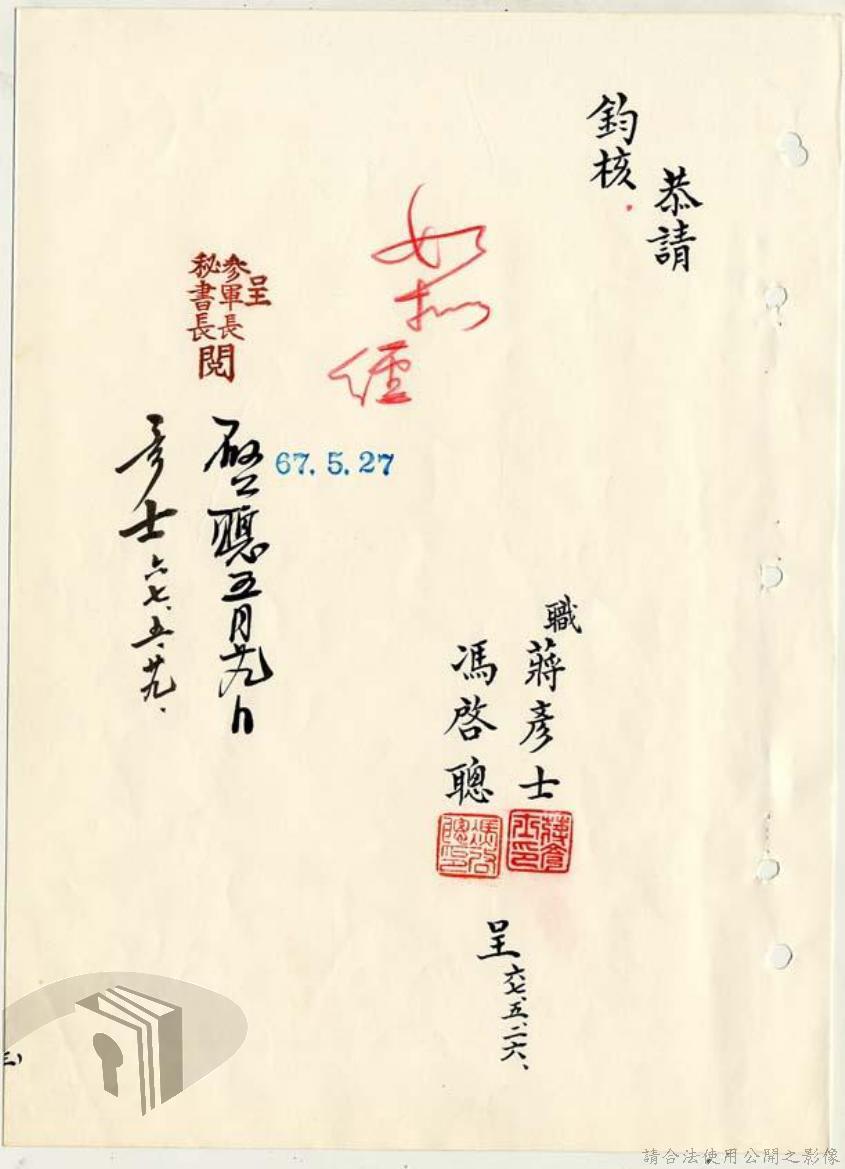 恭請
鈞核.
職 蔣彥士
馮啓聰
蔣彥士印
馮啓聰印
呈 六七、五、二六、
如擬
經
67.5.27
呈
參軍長
秘書長
閱
啟聰五月廿九日
彥士 六七、五、廿九、
(三)
請合法使用公開之影像